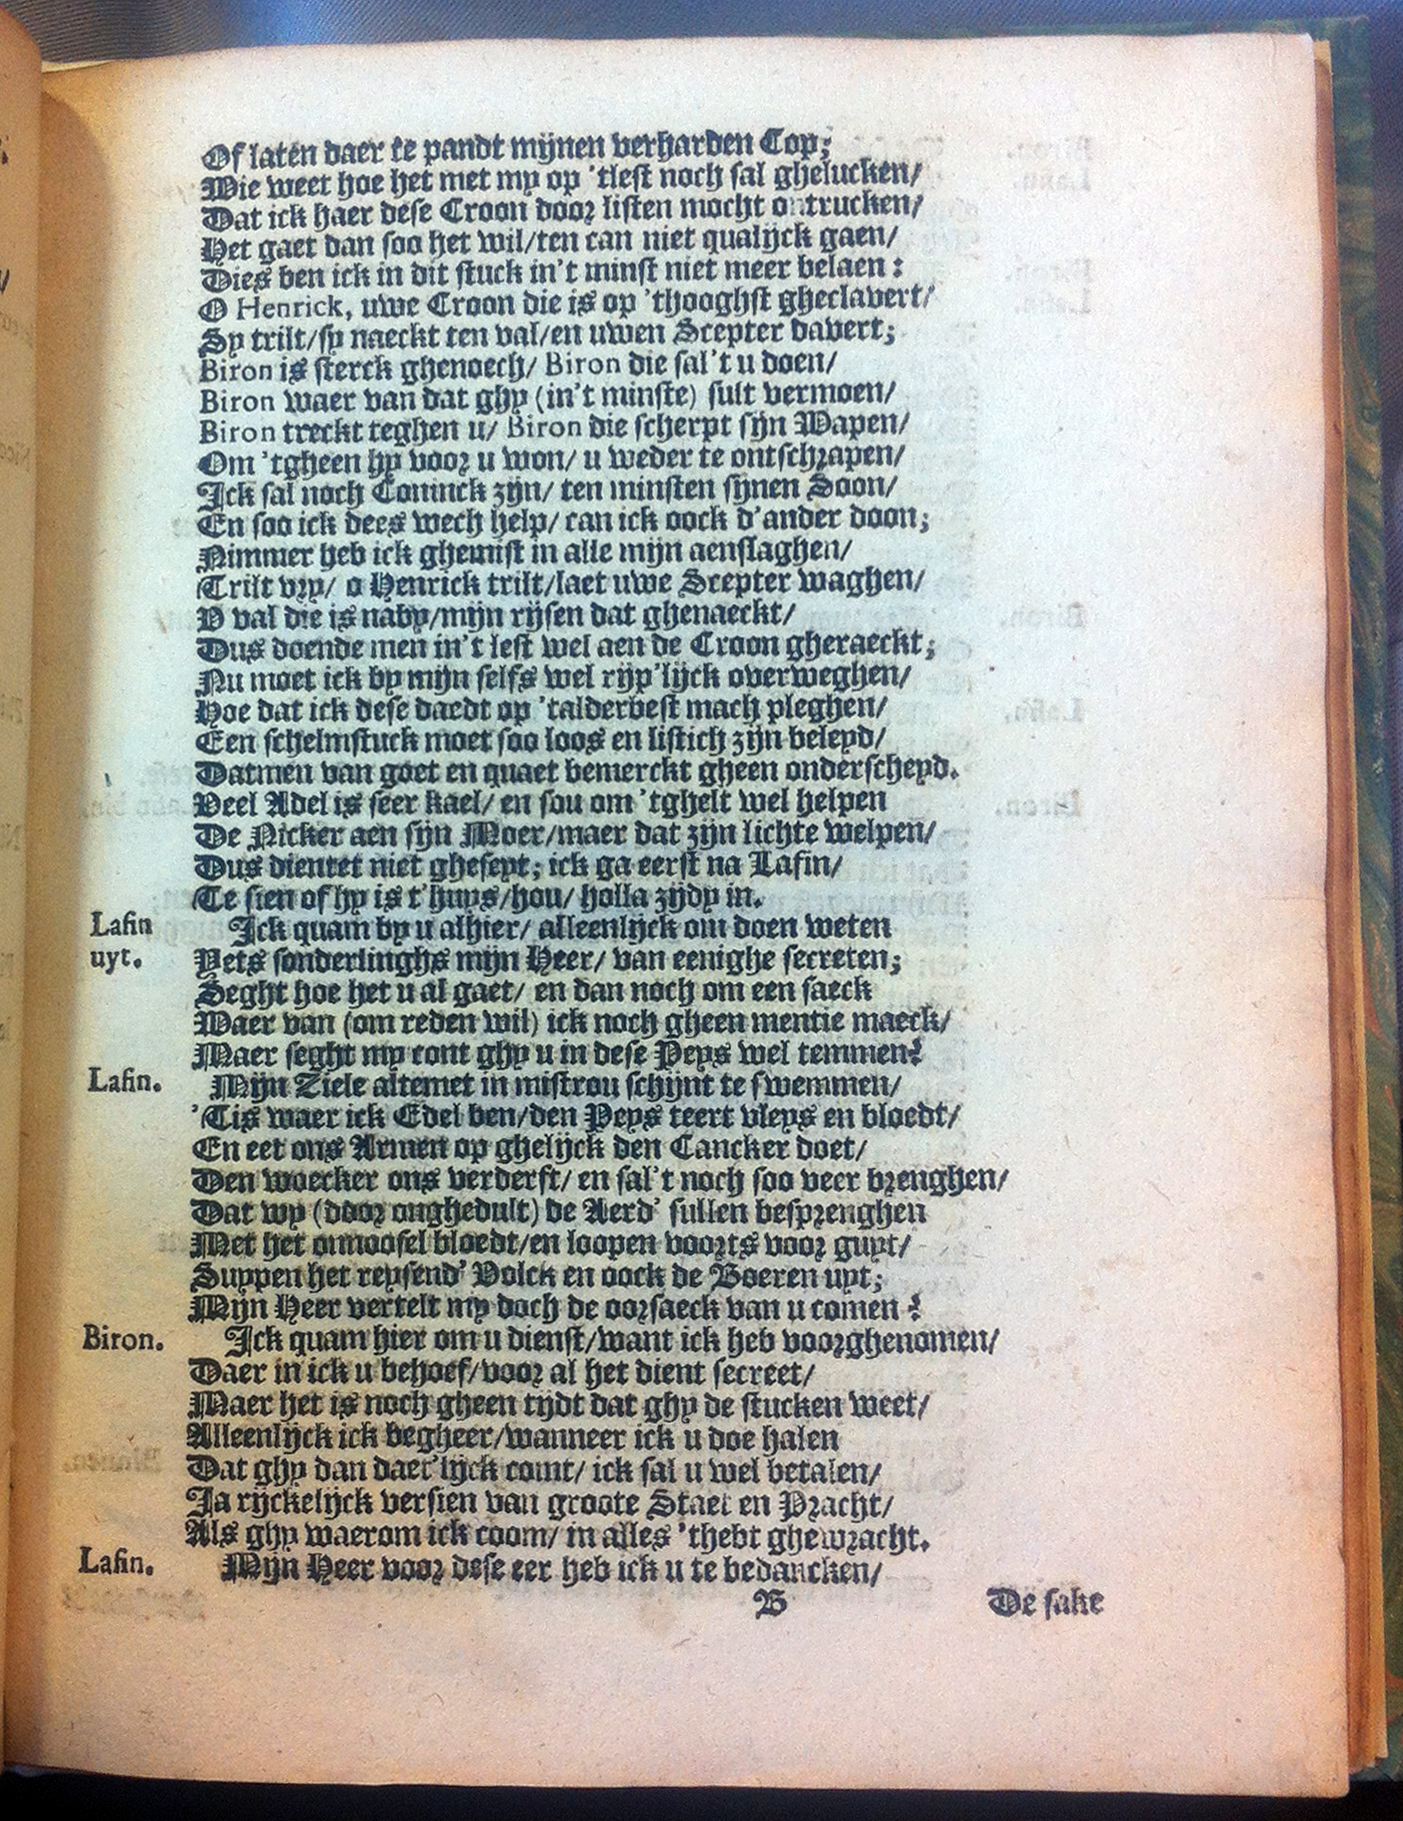 Of laten daer te pandt mijnen verharden Cop;
Wie weet hoe het met my op 'tlest noch sal ghelucken/
Dat ick haer dese Croon door listen mocht ontrucken/
Het gaet dan soo het wil/ten can niet qualijck gaen/
Dies ben ick in dit stuck in't minst niet meer belaen:
O Henrick, uwe Croon die is op 'thooghst gheclavert/
Sy trilt/sy naeckt ten val/en uwen Scepter davert;
Biron is sterck ghenoech/ Biron die sal't u doen/
Biron waer van dat ghy (in't minste) sult vermoen/
Biron treckt teghen u/ Biron die scherpt sijn Wapen/
Om 'tgheen hy voor u won/ u weder te ontschrapen/
Ick sal noch Coninck zijn/ ten minsten sijnen Soon/
En soo ick dees wech help/ can ick oock d'ander doon;
Nimmer heb ick ghemist in alle mijn aenslaghen/
Trilt vry/ o Henrick trilt/laet uwe Scepter waghen/
V val die is naby/mijn rijsen dat ghenaeckt/
Dus doende men in't lest wel aen de Croon gheraeckt;
Nu moet ick by mijn selfs wel rijp'lijck overweghen/
Hoe dat ick dese daedt op 'talderbest mach pleghen/
Een schelmstuck moet soo loos en listich zijn beleyd/
Datmen van goet en quaet bemerckt gheen onderscheyd.
Veel Adel is seer kael/ en sou om 'tghelt wel helpen
De Nicker aen sijn Moer/maer dat zijn lichte welpen/
Dus dientet niet gheseyt; ick ga eerst na Lafin/
Te sien of hy is t'huys/hou/ holla zijdy in.
Lafin uyt. Ick quam by u alhier/ alleenlijck om doen weten
Yets sonderlinghs mijn Heer/ van eenighe secreten;
Seght hoe het u al gaet/ en dan noch om een saeck
Waer van (om reden wil) ick noch gheen mentie maeck/
Maer seght my cont ghy u in dese Peys wel temmen?
Lafin. Mijn Ziele altemet in mistrou schijnt te swemmen/
'Tis waer ick Edel ben/den Peys teert vleys en bloedt/
En eet ons Armen op ghelijck den Cancker doet/
Den woecker ons verderft/ en sal't noch soo veer brenghen/
Dat wy (door onghedult) de Aerd' sullen besprenghen
Met het onnoosel bloedt/en loopen voorts voor guyt/
Suypen het reysend' Volck en oock de Boeren uyt;
Mijn Heer vertelt my doch de oorsaeck van u comen?
Biron. Ick quam hier om u dienst/want ick heb voorghenomen/
Daer in ick u behoef/voor al het dient secreet/
Maer het is noch gheen tijdt dat ghy de stucken weet/
Alleenlijck ick begheer/wanneer ick u doe halen
Dat ghy dan daer'lijck comt/ ick sal u wel betalen/
Ja rijckelijck versien van groote Staet en Pracht/
Als ghy waerom ick coom/ in alles 'thebt ghewracht.
Lafin. Mijn Heer voor dese eer heb ick u te bedancken/
B De sake